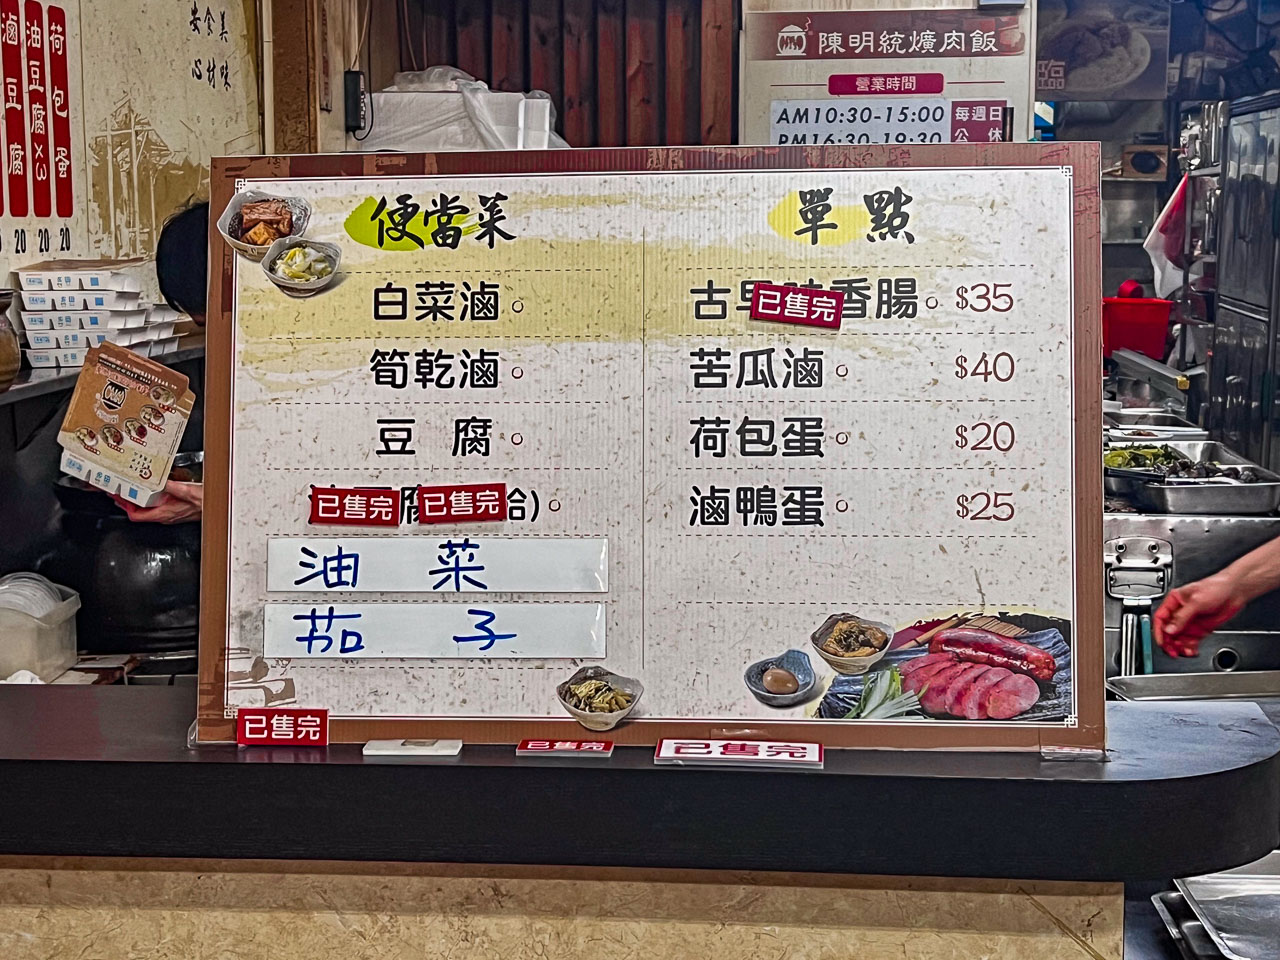 滷豆腐
油豆腐X3
荷包蛋
20
20
安食美
心材味
陳明統爌肉飯
營業時間
AM10:30-15:00
PM16:30-19:30
每週日
公休
臨
便當菜
白菜滷
筍乾滷
豆腐
已售完
已售完
油菜
茄子
單點
古早味香腸 $35
已售完
苦瓜滷 $40
荷包蛋 $20
滷鴨蛋 $25
已售完
已售完
已售完